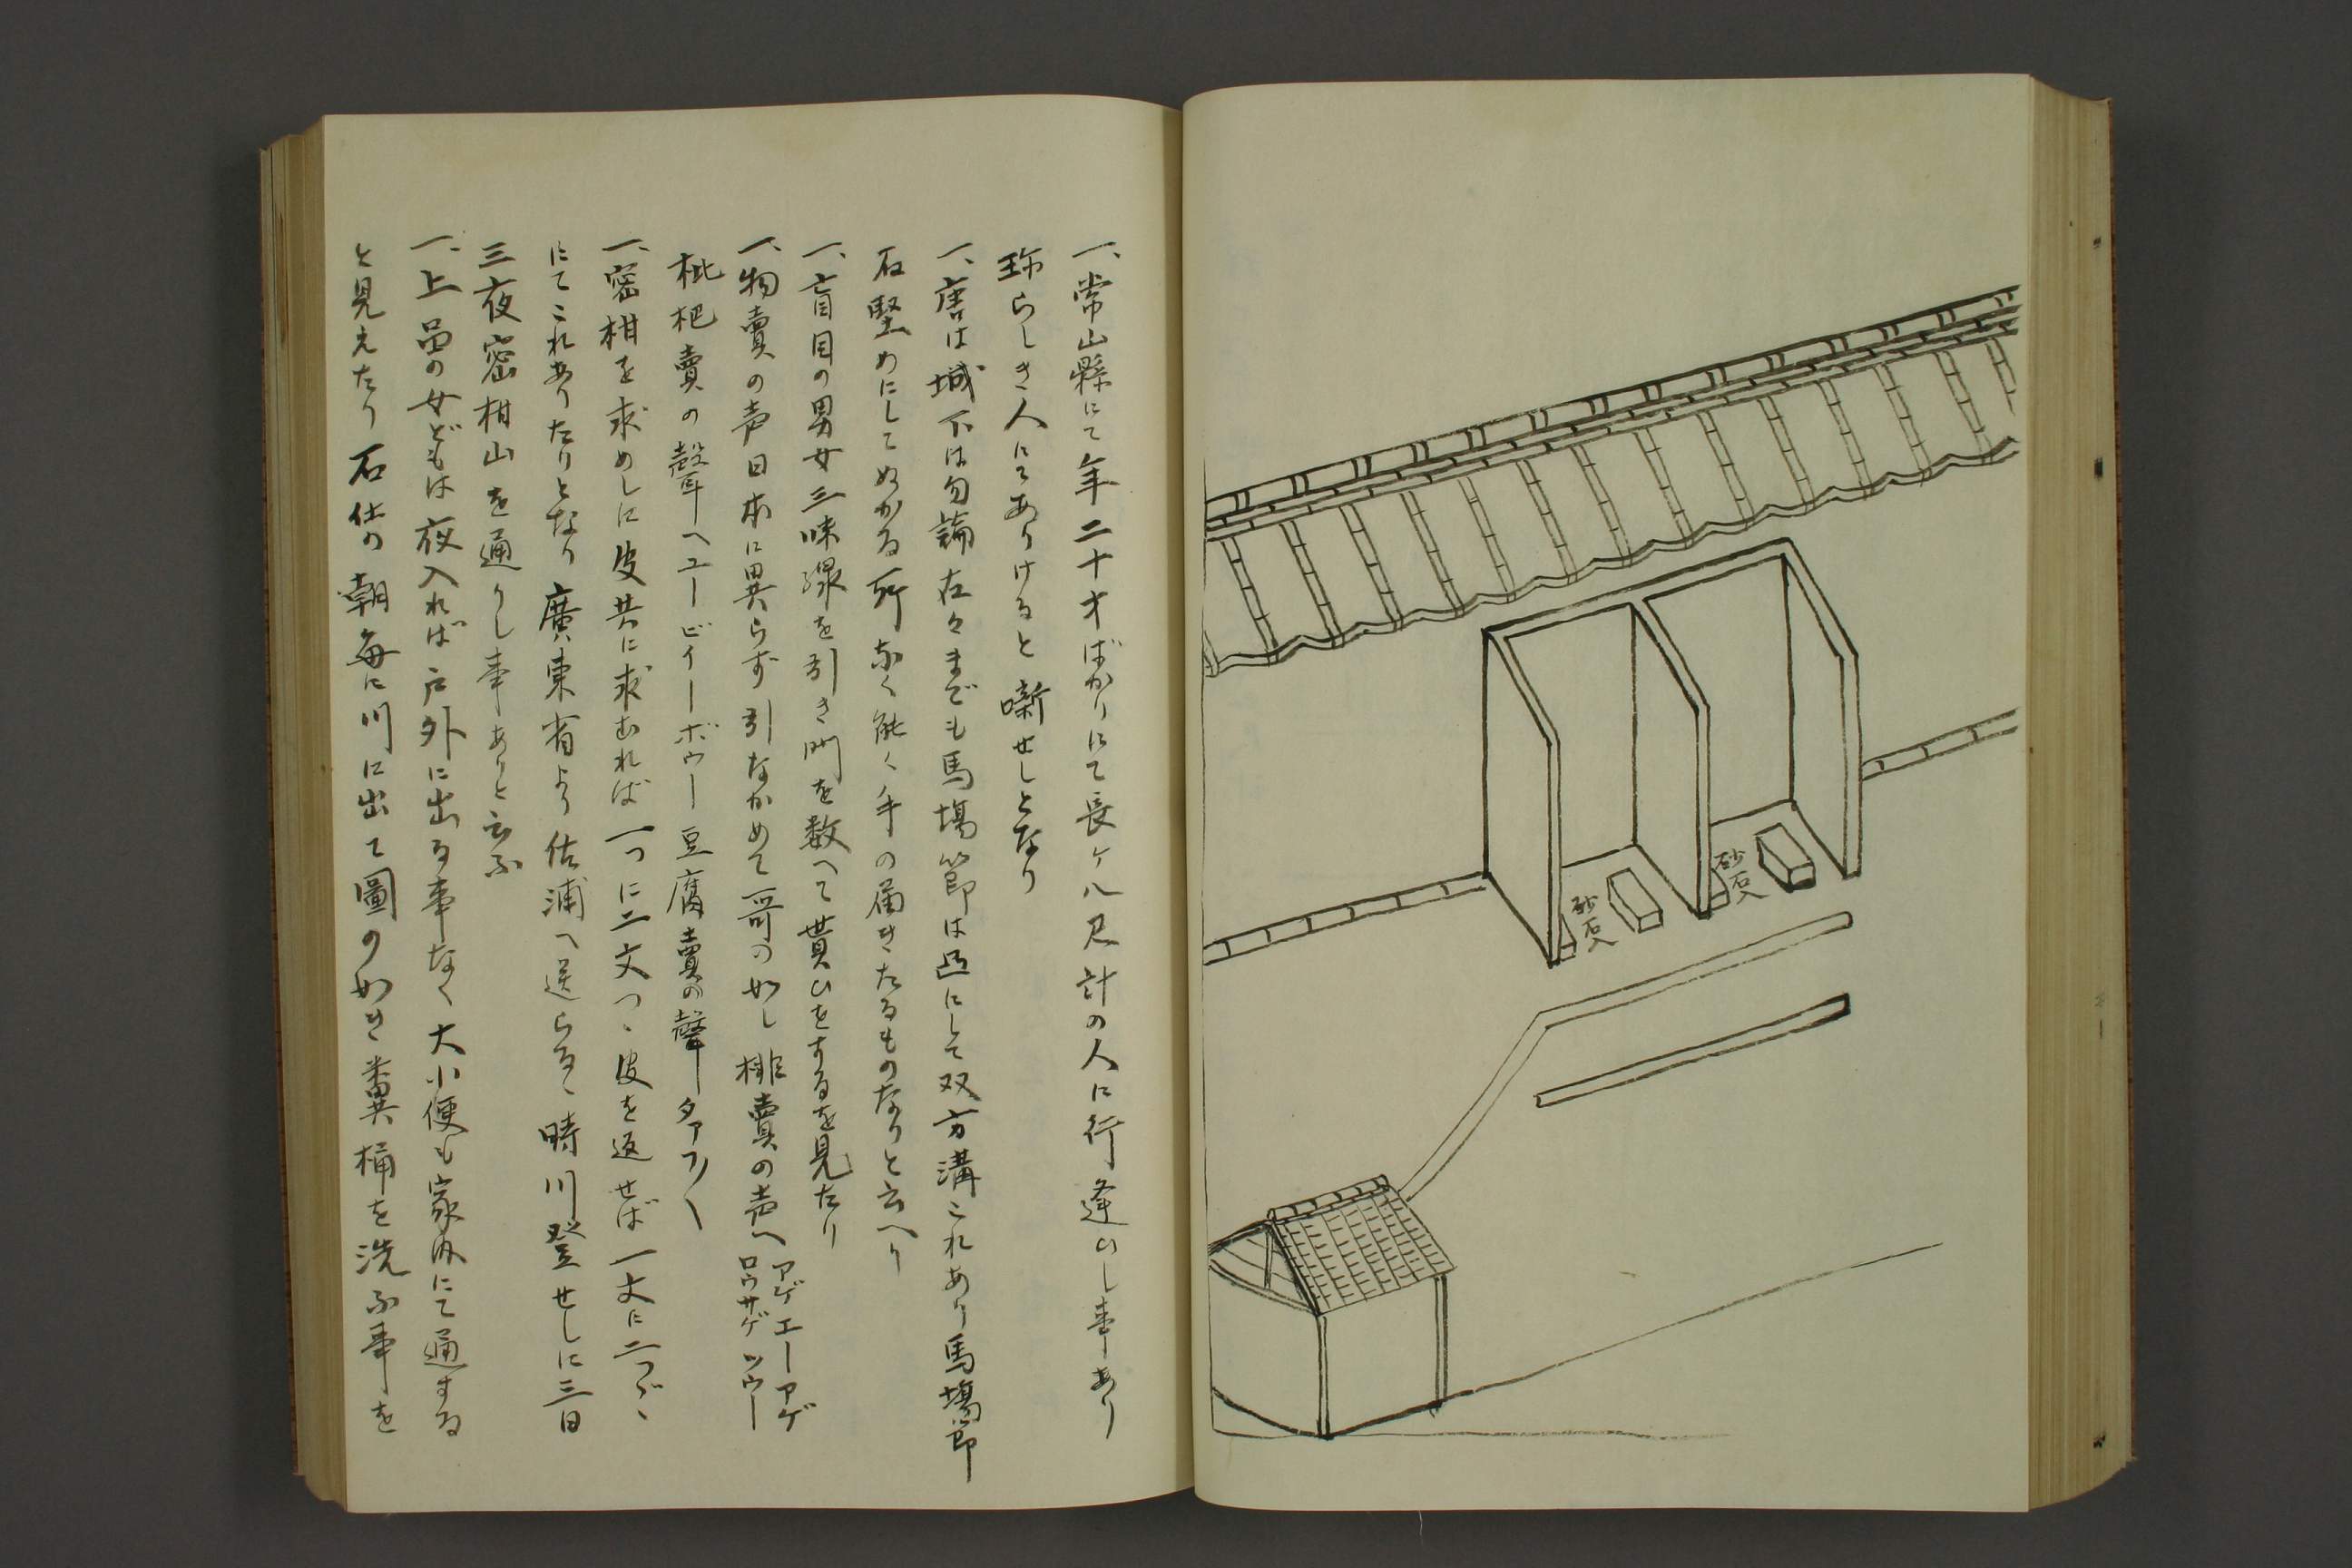 砂石入
砂石入
一、常山縣にて年二十才ばかりにて長ケ八尺計の人に行逢ひし事あり
珎らしき人にてありけると噺せしとなり
一、唐は城下は勿論在々まても馬場節は凸にして双方溝これあり馬場節
石堅めにしてぬかる所なく能く手の届きたるものなりと云へり
一、盲目の男女三味線を引き門を数へて貰ひをするを見たり
一、物賣の声日本に異らず引なかめて哥の如し 榧賣の声へアゲエーアゲ
ロウサゲツウー
枇杷賣の聲へユービイーボウー 豆腐賣の聲 タアフ〳〵
一、密柑を求めしに皮共に求むれば一つに二文つゝ皮を返せば一文に二つゞゝ
にてこれありたりとなり廣東省より佐浦へ送らるゝ時川登せしに三日
三夜密柑山を通りし事ありと云ふ
一、上品の女どもは夜入れば戸外に出る事なく大小便も家内にて通する
と見えたり石仕の朝毎に川に出て圖の如き糞桶を洗ふ事を